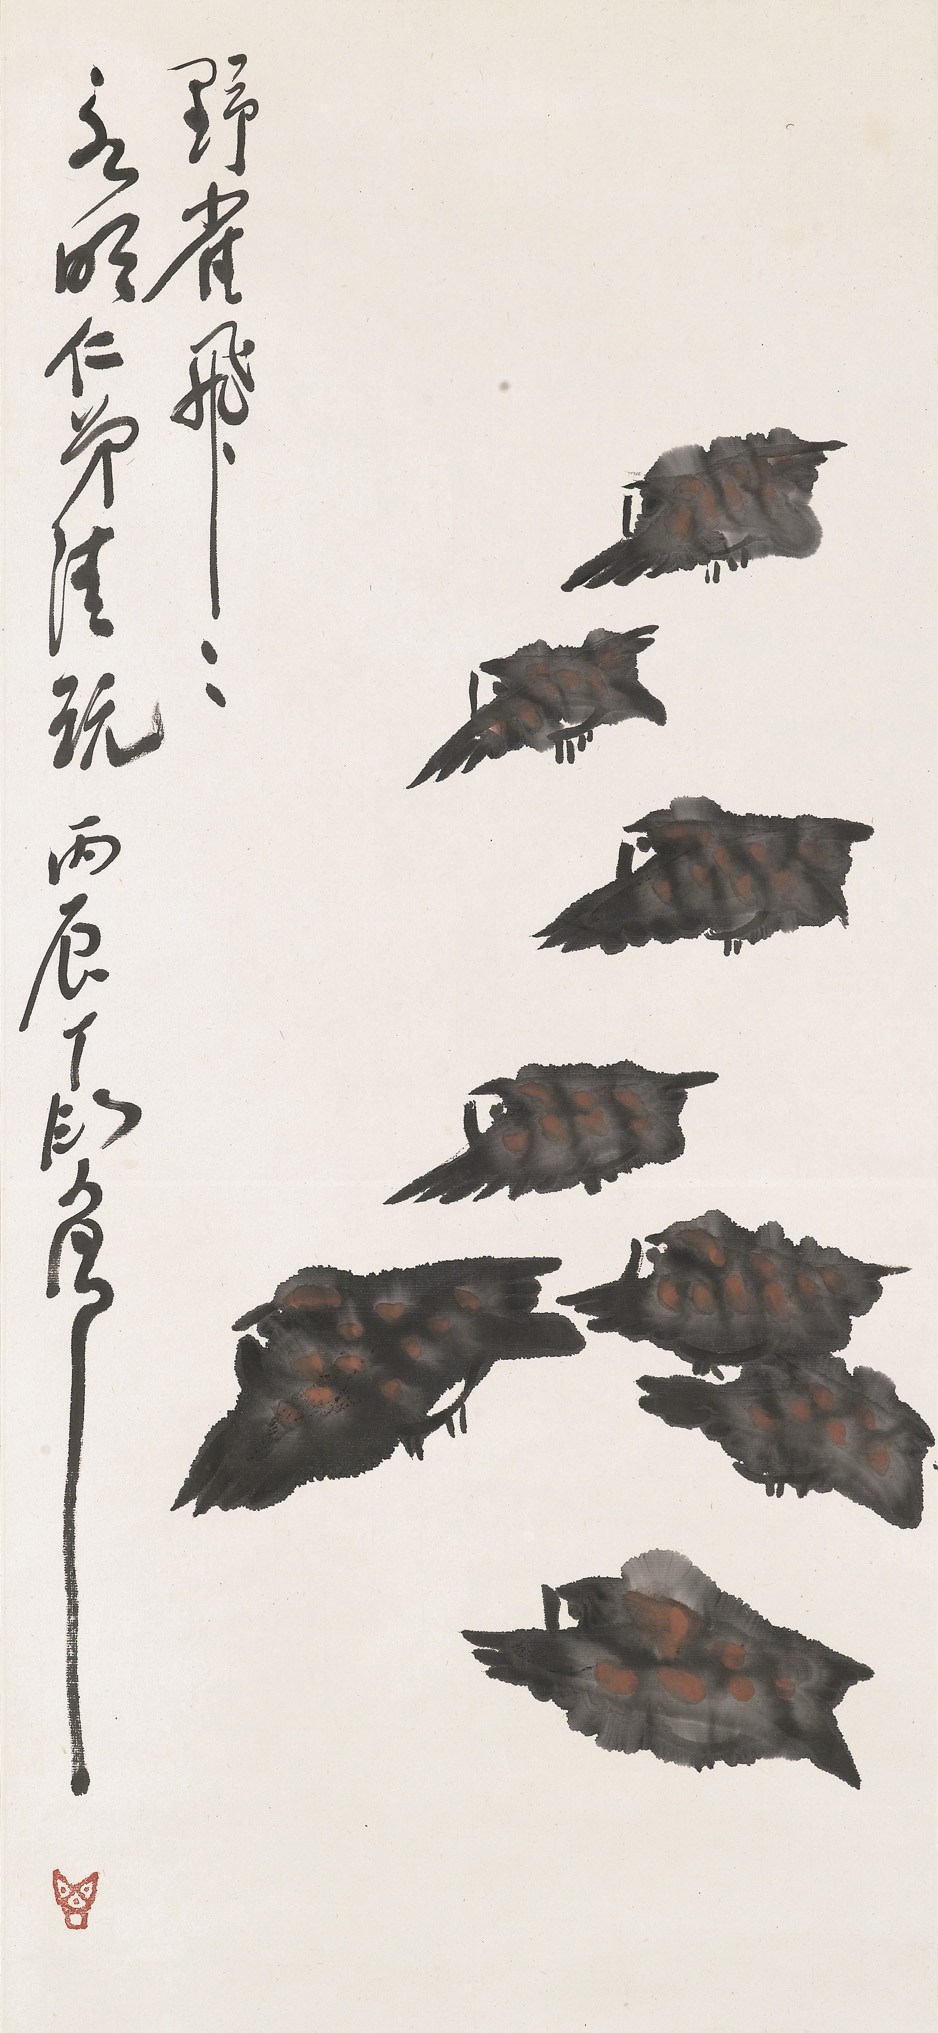 野雀飛〻
永明仁弟清玩 丙辰丁衍庸